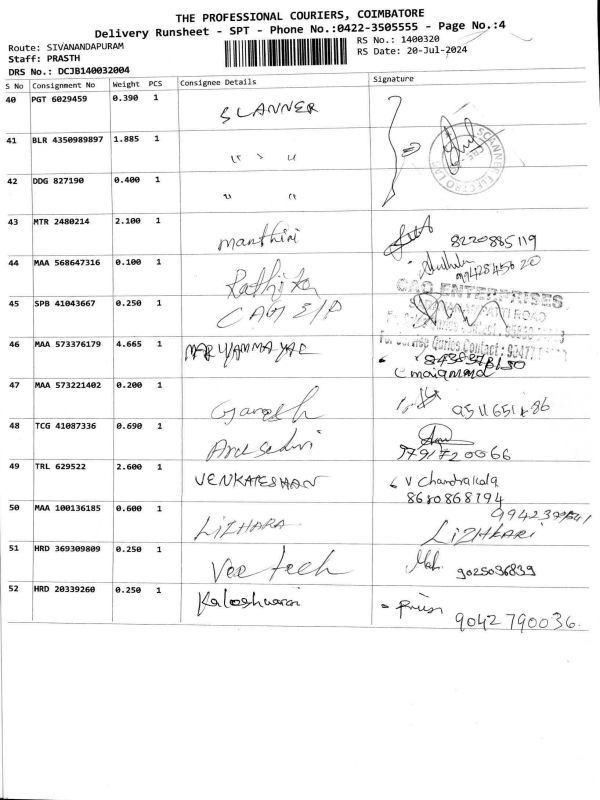 THE PROFESSIONAL COURIERS, COIMBATORE
Delivery Runsheet - SPT - Phone No.:0422-3505555 - Page No.:4
Route: SIVANANDAPURAM
RS No.: 1400320
Staff: PRASTH
RS Date: 20-Jul-2024
DRS No.: DCJB140032004
S No Consignment No Weight PCS Consignee Details Signature
40 PGT 6029459 0.390 1 SLANNER
41 BLR 4350989897 1.885 1 " " "
42 DDG 827190 0.400 1 " "
43 MTR 2480214 2.100 1 manthini 8220885119
44 MAA 568647316 0.100 1 Rathika
45 SPB 41043667 0.250 1 CAG E/P
CAG ENTERPRISES
46 MAA 573376179 4.665 1 MARIYAMMAYAL
47 MAA 573221402 0.200 1 Ganesh
48 TCG 41087336 0.690 1 9791720066
49 TRL 629522 2.600 1 VENKATESHAN V Chandrakala
8680868194
50 MAA 100136185 0.600 1 LIZHARA LIZHKARI
51 HRD 369309809 0.250 1 Vee tech Mah. 9025036839
52 HRD 20339260 0.250 1 Kaleshwari 9042790036.